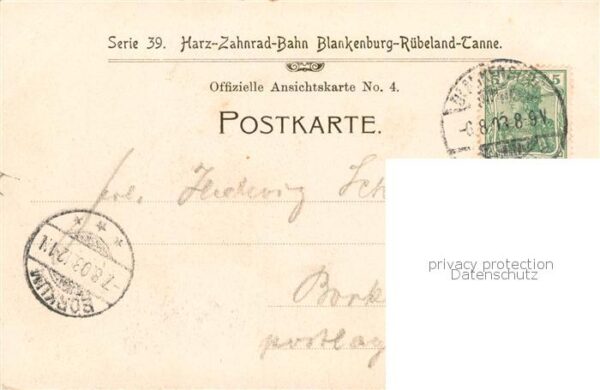 Serie 39. Harz-Zahnrad-Bahn Blankenburg-Rübeland-Tanne.
Offizielle Ansichtskarte No. 4.
POSTKARTE.
5
-6.8.03.8-9V.
Hedwig Sch
BORKUM
-7.8.03.12-1N.
Bork
postlag
privacy protection
Datenschutz